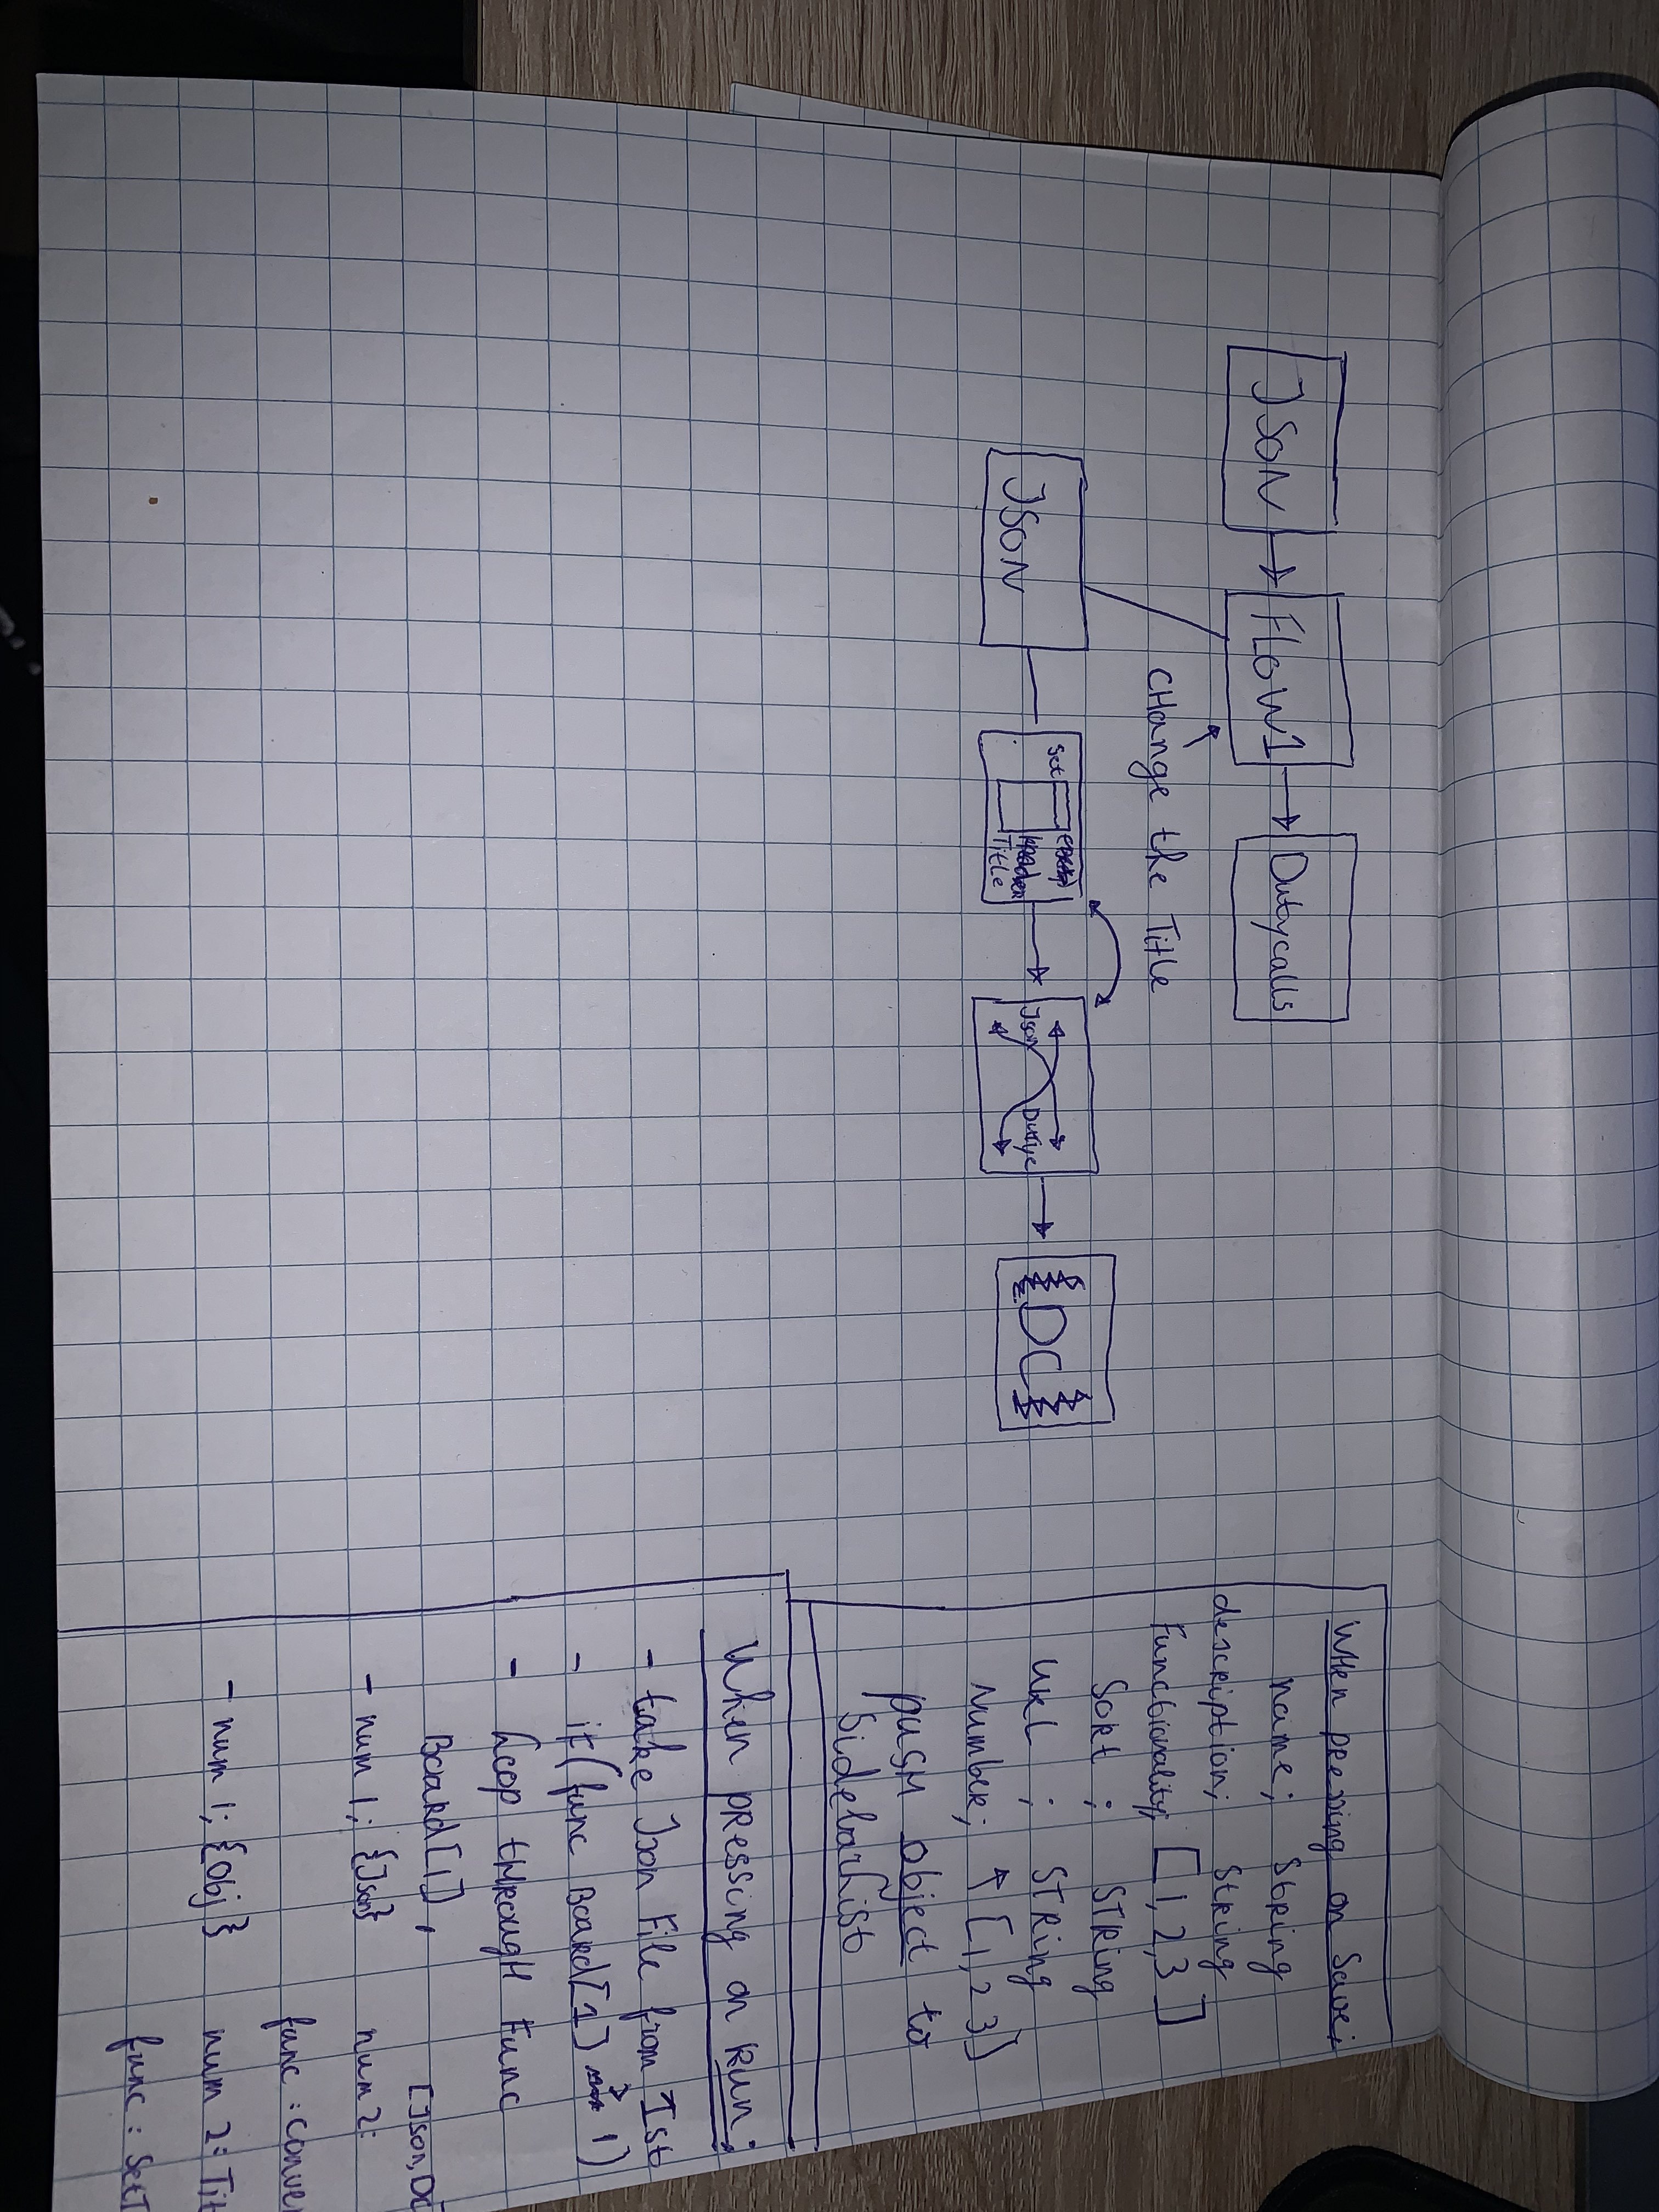 JSON
FLOW1
Dutycalls
CHange the Title
JSON
Set
Header
Title
Json
Dutyc
DC
WHen pressing on Save:
name; String
description; String
Functionality; [1,2,3]
Sort ; STRing
URL ; STRing
Number; [1,2 3]
pusH object to
SidebarList
When pressing on Run:
- take Json File from Ist
- if (func Board[1] 1)
- Loop tHRougH Func
Board[1], [Json, DC
- num 1; {Json} num 2:
func : conver
- num 1; {Obj} num 2: Tit
func : SetT